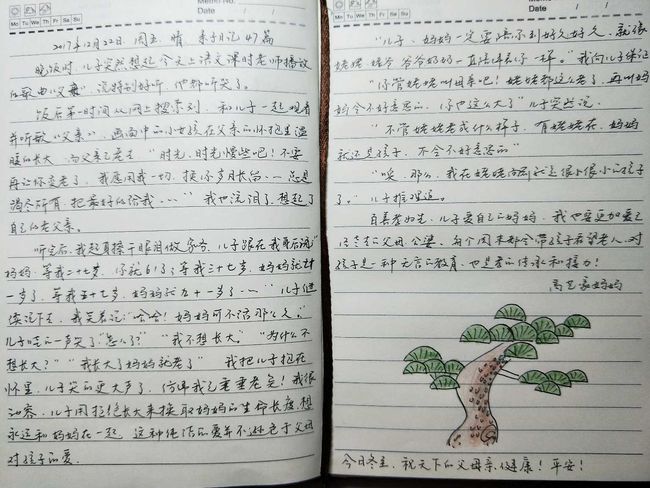 Mo Tu We Th Fr Sa Su
Memo No.
Date / /
2017年12月22日 周五 晴 亲子日记47篇
晚饭时,儿子突然想起今天上语文课时老师播放
的歌曲《父亲》,说特别好听,他都听哭了。
饭后第一时间从网上搜索到,和儿子一起观看
并听歌《父亲》,画面中的小女孩在父亲的怀抱里温
暖的长大,而父亲已老去"时光,时光慢些吧!不要
再让你变老了,我愿用我一切,换你岁月长留、一总是
竭尽所有,把最好的给我……"我也流泪了,想起了
自己的老父亲。
听完后,我起身擦干眼泪做家务,儿子跟在我身后说"
妈妈,等我二十七岁,你就61了;等我三十七岁,妈妈就七十
一岁了,等我五十七岁,妈妈就九十一岁了……"儿子继
续说下去,我笑着说:"哈哈!妈妈可不活那么久。"
儿子哇的一声哭了"怎么了?""我不想长大。""为什么不
想长大?""我长大了妈妈就老了"我把儿子抱在
怀里,儿子哭的更大声了,仿佛我已垂垂老矣!我很
动容,儿子用拒绝长大来换取妈妈的生命长度,想
永远和妈妈在一起,这种纯洁的爱并不逊色于父母
对孩子的爱。
Mo Tu We Th Fr Sa Su
Memo No.
Date / /
"儿子,妈妈一定要活到好久好久,就像
姥姥、姥爷、爷爷奶奶一直陪伴你一样。"我向儿子保证
"你管姥姥叫娘亲吧!姥姥都这么老了,再叫妈
妈会不好意思的,你也这么大了"儿子突然说。
"不管姥姥老成什么样子,有姥姥在,妈妈
就还是孩子,不会不好意思的"
"哎,那么,我在姥姥面前就是很小很小的孩子
了。"儿子推理道。
百善孝为先,儿子爱自己的妈妈,我也要更加爱已
父母、公婆,每个周末都会带孩子看望老人,对
孩子是一种无言的教育,也是孝的传承和接力!
妈妈
今日冬至,祝天下的父母亲健康!平安!